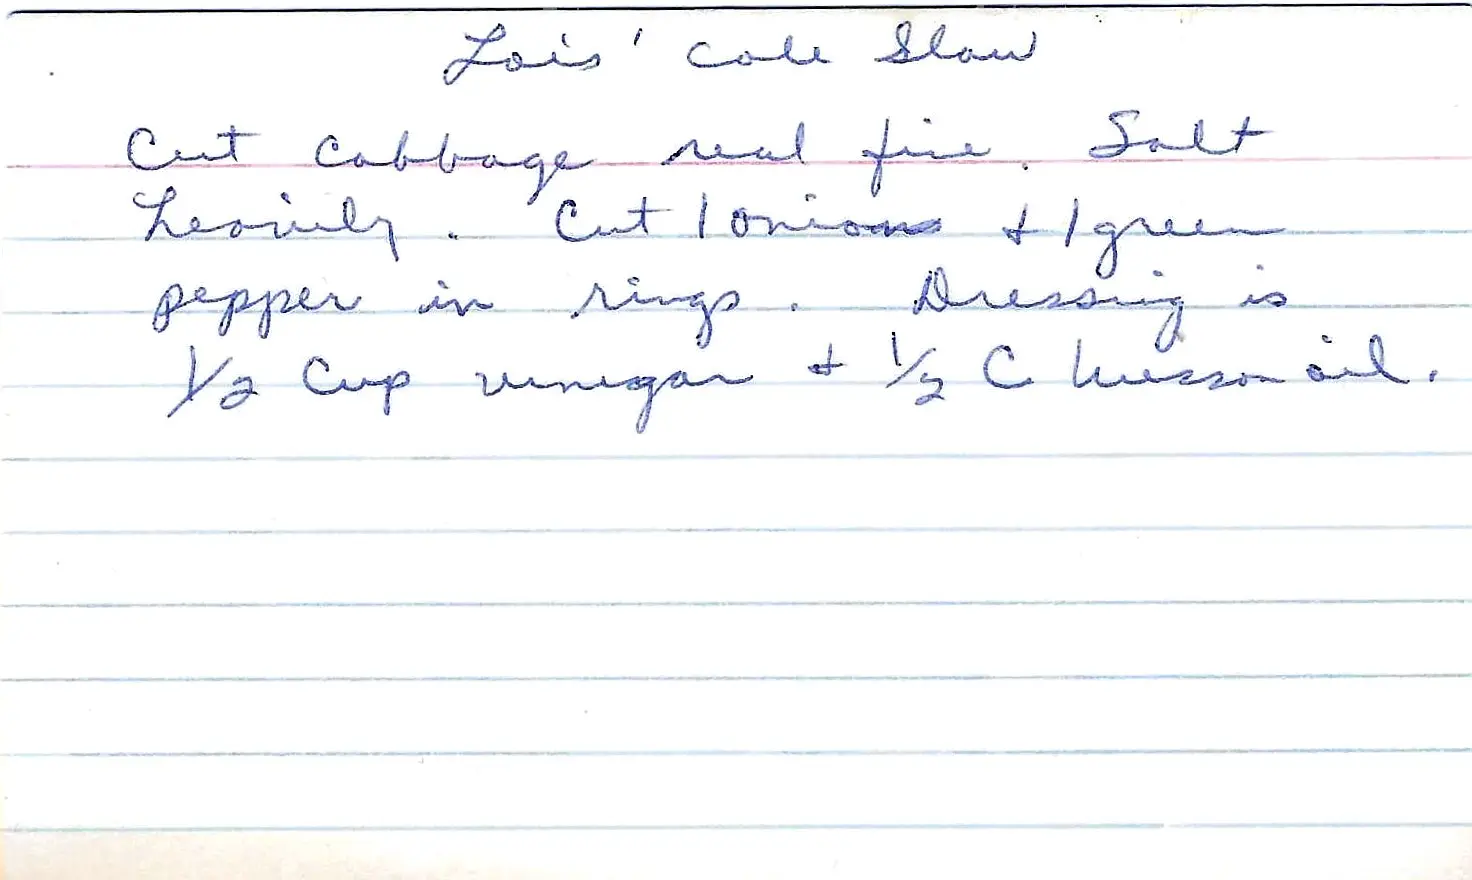 Lois' Cole Slaw
Cut cabbage real fine. Salt
heavily. Cut 1 onion & 1 green
pepper in rings. Dressing is
1/2 Cup vinegar & 1/2 C Wesson oil.